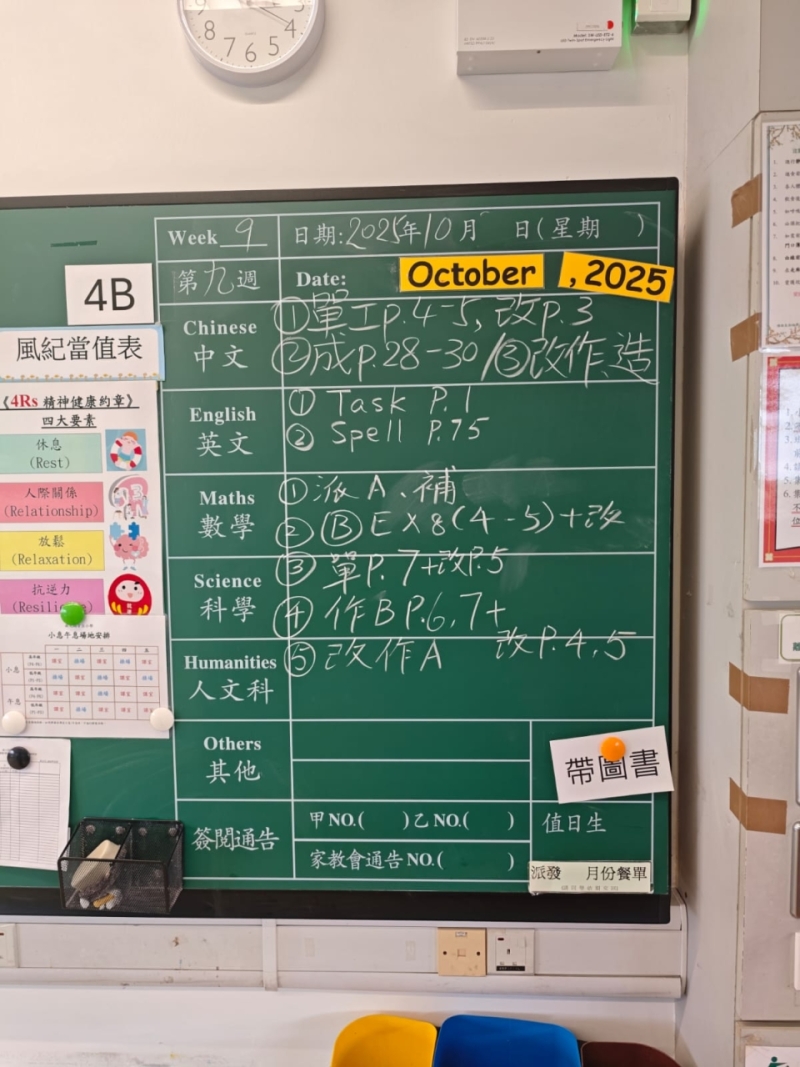 8 7 6 5 4
Week 9
日期:2025年10月 日(星期 )
第九週
Date: October , 2025
4B
風紀當值表
《4Rs 精神健康約章》
四大要素
休息
(Rest)
人際關係
(Relationship)
放鬆
(Relaxation)
抗逆力
小息午息場地安排
一 二 三 四 五
小息
午息
Chinese
中文
①單工p.4-5, 改p.3
②成p.28-30/③改作、造
English
英文
① Task P.1
② Spell P.75
Maths
數學
①派A、補
② Ⓑ EX8(4-5)+改
Science
科學
③ 單P.7+改P.5
④ 作BP.6,7+
改P.4,5
Humanities
人文科
⑤ 改作A
Others
其他
帶圖書
簽閱通告
甲NO.( )乙NO.( )
家教會通告NO.( )
值日生
派發 月份餐單